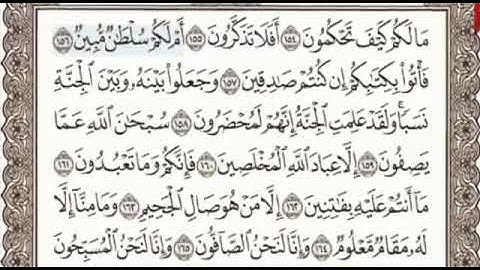 مَا لَكُمْ كَيْفَ تَحْكُمُونَ ١٥٤ أَفَلَا تَذَكَّرُونَ ١٥٥ أَمْ لَكُمْ سُلْطَٰنٌ مُّبِينٌ ١٥٦
فَأْتُوا۟ بِكِتَٰبِكُمْ إِن كُنتُمْ صَٰدِقِينَ ١٥٧ وَجَعَلُوا۟ بَيْنَهُۥ وَبَيْنَ ٱلْجِنَّةِ
نَسَبًا ۚ وَلَقَدْ عَلِمَتِ ٱلْجِنَّةُ إِنَّهُمْ لَمُحْضَرُونَ ١٥٨ سُبْحَٰنَ ٱللَّهِ عَمَّا
يَصِفُونَ ١٥٩ إِلَّا عِبَادَ ٱللَّهِ ٱلْمُخْلَصِينَ ١٦٠ فَإِنَّكُمْ وَمَا تَعْبُدُونَ ١٦١
مَآ أَنتُمْ عَلَيْهِ بِفَٰتِنِينَ ١٦٢ إِلَّا مَنْ هُوَ صَالِ ٱلْجَحِيمِ ١٦٣ وَمَا مِنَّآ إِلَّا
لَهُۥ مَقَامٌ مَّعْلُومٌ ١٦٤ وَإِنَّا لَنَحْنُ ٱلصَّآفُّونَ ١٦٥ وَإِنَّا لَنَحْنُ ٱلْمُسَبِّحُونَ